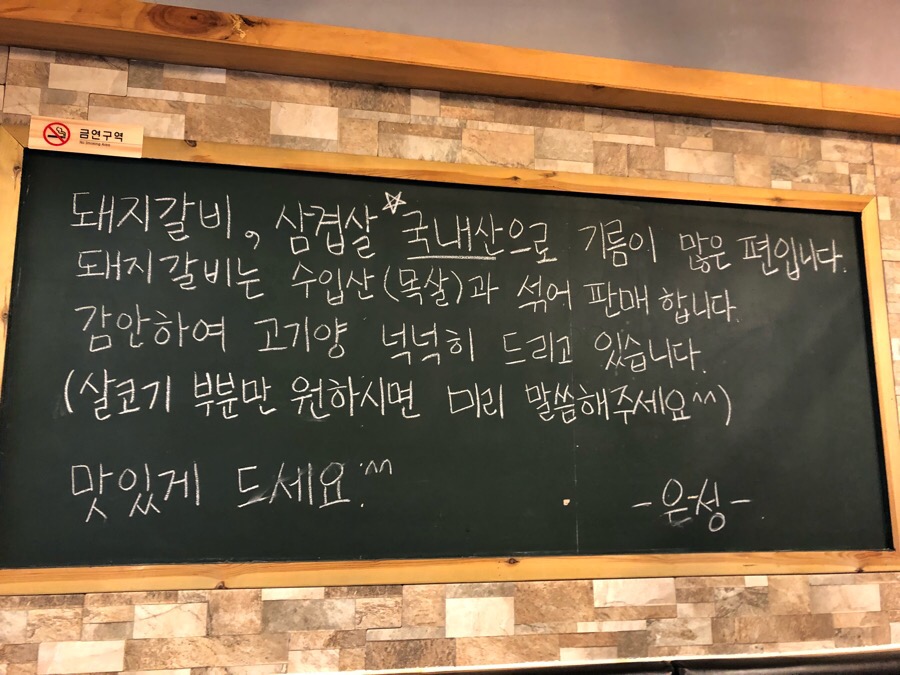 금연구역
No Smoking Area
돼지갈비, 삼겹살☆국내산으로 기름이 많은 편입니다.
돼지갈비는 수입산(목살)과 섞어 판매합니다.
감안하여 고기양 넉넉히 드리고 있습니다.
(살코기 부분만 원하시면 미리 말씀해주세요^^)
맛있게 드세요.^^
-은성-